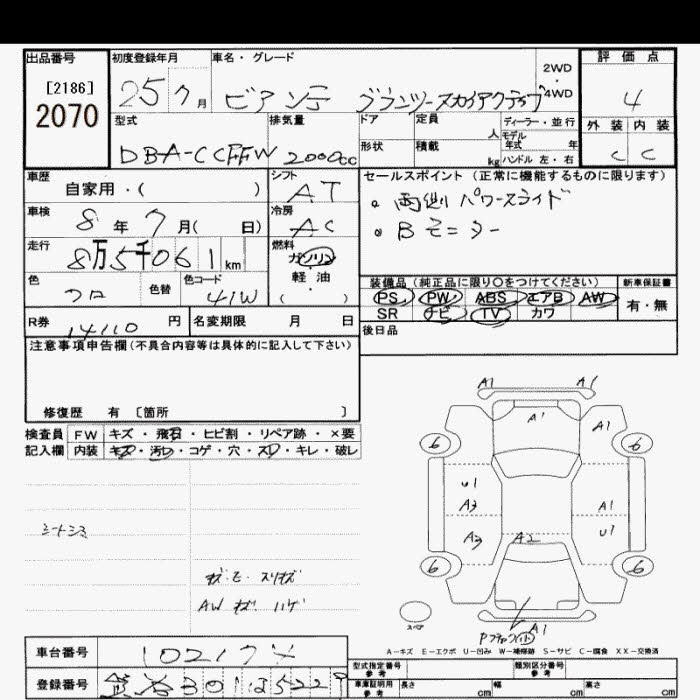 出品番号 初度登録年月 車名・グレード 評価点
[2186] 2070 25 7月 ビアンテ グランツースカイアクティブ 2WD・4WD 4
型式 排気量 ドア 定員 人 ディーラー・並行 外装 内装
DBA-CCFFW 2000cc 形状 積載 kg モデル年式 年 ハンドル 左・右 C C
車歴 自家用・( ) シフト AT セールスポイント (正常に機能するものに限ります)
車検 8年7月( 日) 冷房 AC 。両側パワースライド
走行 8万5千061km 燃料 ガソリン 。Bモニター
軽油
( )
色 クロ 色替 色コード 41W 装備品 (純正品に限り〇をつけてください) 新車保証書
PS PW ABS エアB AW 有・無
SR ナビ TV カワ
R券 14110円 名変期限 月 日 後日品
注意事項申告欄(不具合内容等は具体的に記入して下さい)
修復歴 有 [箇所 ]
検査員 FW キズ・飛石・ヒビ割・リペア跡・×要
記入欄 内装 キズ・汚レ・コゲ・穴・スレ・キレ・破レ
A1 A1
A1 A1
6 6
U1
A3 A1
A3 A2 U1
6 6
シートシミ
キズ・モ・スリキズ
AW キズ ハゲ
スペア A1
A-キズ E-エクボ U-凹み W-補修跡 S-サビ C-腐食 XX-交換済
車台番号 型式指定番号 参考 類別区分番号 参考
登録番号 車庫証明用 参考 長さ cm 幅 cm 高さ cm